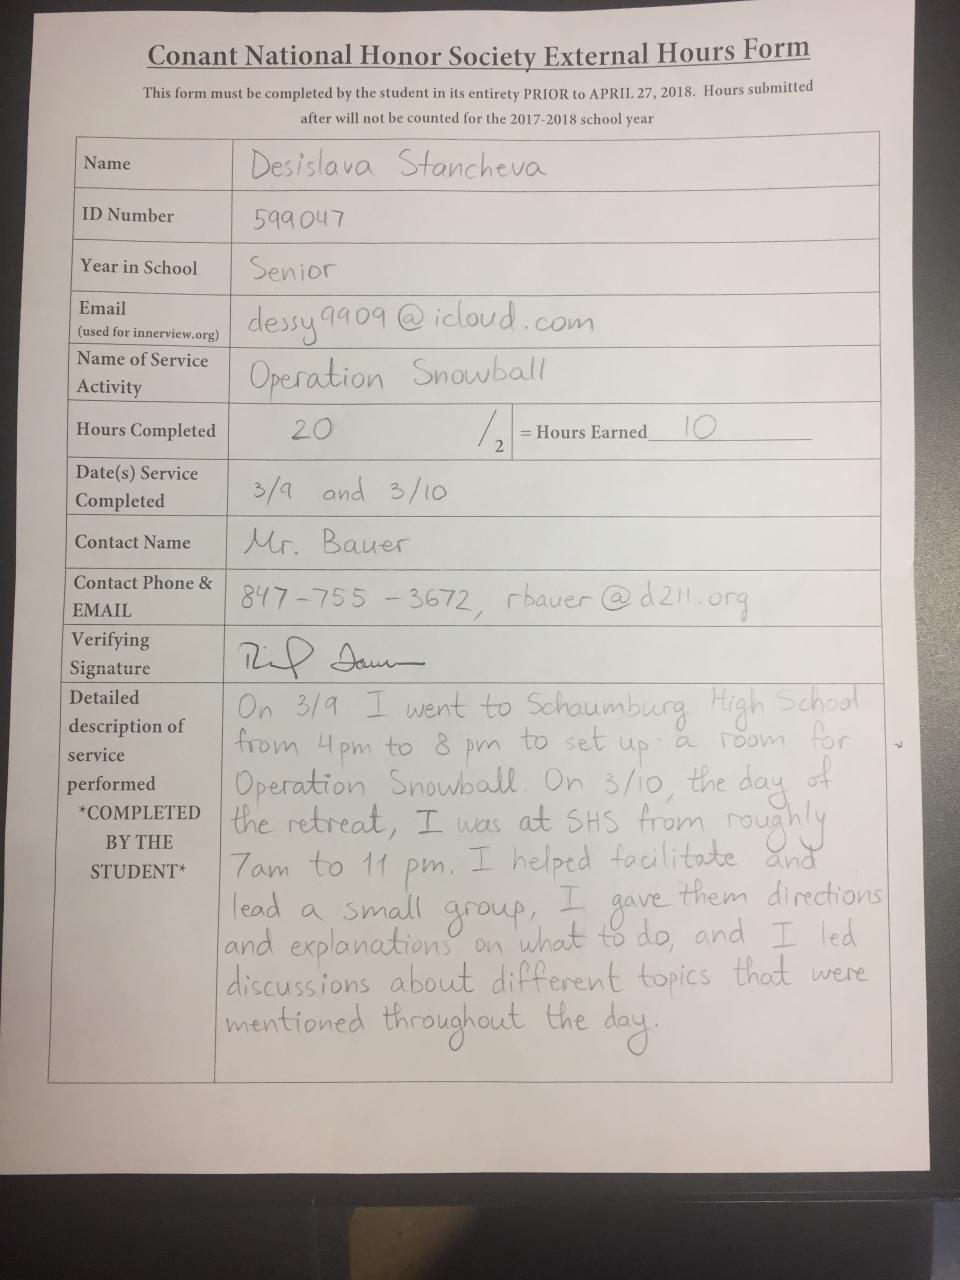 Conant National Honor Society External Hours Form
This form must be completed by the student in its entirety PRIOR to APRIL 27, 2018. Hours submitted
after will not be counted for the 2017-2018 school year
Name Desislava Stancheva
ID Number 599047
Year in School Senior
Email
(used for innerview.org) dessy9909@icloud.com
Name of Service
Activity Operation Snowball
Hours Completed 20 /2 = Hours Earned 10
Date(s) Service
Completed 3/9 and 3/10
Contact Name Mr. Bauer
Contact Phone &
EMAIL 847-755-3672, rbauer@d211.org
Verifying
Signature
Detailed
description of
service
performed
*COMPLETED
BY THE
STUDENT*
On 3/9 I went to Schaumburg High School
from 4pm to 8 pm to set up a room for
Operation Snowball. On 3/10, the day of
the retreat, I was at SHS from roughly
7am to 11 pm. I helped facilitate and
lead a small group, I gave them directions
and explanations on what to do, and I led
discussions about different topics that were
mentioned throughout the day.